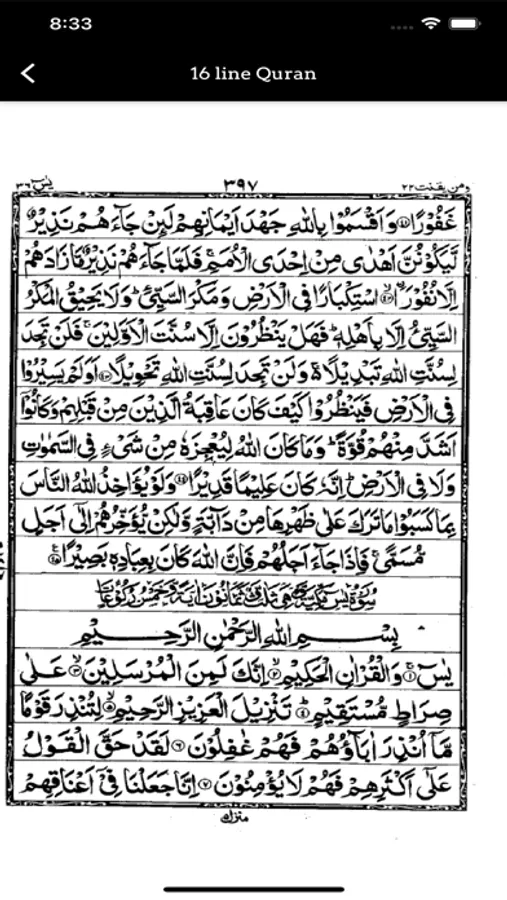 8:33
16 line Quran
ومن یقنت ۲۲
۳۹۷
یٰسٓ ۳۶
غَفُوْرًا ۝۴۱ وَاَقْسَمُوْا بِاللّٰهِ جَهْدَ اَیْمَانِهِمْ لَىِٕنْ جَآءَهُمْ نَذِیْرٌ
لَّیَكُوْنُنَّ اَهْدٰی مِنْ اِحْدَی الْاُمَمِ ۚ فَلَمَّا جَآءَهُمْ نَذِیْرٌ مَّا زَادَهُمْ
اِلَّا نُفُوْرَا ۝۴۲ اسْتِكْبَارًا فِی الْاَرْضِ وَمَكْرَ السَّیِّئِ ؕ وَلَا یَحِیْقُ الْمَكْرُ
السَّیِّئُ اِلَّا بِاَهْلِهٖ ؕ فَهَلْ یَنْظُرُوْنَ اِلَّا سُنَّتَ الْاَوَّلِیْنَ ۚ فَلَنْ تَجِدَ
لِسُنَّتِ اللّٰهِ تَبْدِیْلًا ۚ۬ وَلَنْ تَجِدَ لِسُنَّتِ اللّٰهِ تَحْوِیْلًا ۝۴۳ اَوَلَمْ یَسِیْرُوْا
فِی الْاَرْضِ فَیَنْظُرُوْا كَیْفَ كَانَ عَاقِبَةُ الَّذِیْنَ مِنْ قَبْلِهِمْ وَكَانُوْۤا
اَشَدَّ مِنْهُمْ قُوَّةً ؕ وَمَا كَانَ اللّٰهُ لِیُعْجِزَهٗ مِنْ شَیْءٍ فِی السَّمٰوٰتِ
وَلَا فِی الْاَرْضِ ؕ اِنَّهٗ كَانَ عَلِیْمًا قَدِیْرًا ۝۴۴ وَلَوْ یُؤَاخِذُ اللّٰهُ النَّاسَ
بِمَا كَسَبُوْا مَا تَرَكَ عَلٰی ظَهْرِهَا مِنْ دَآبَّةٍ وَّلٰكِنْ یُّؤَخِّرُهُمْ اِلٰۤی اَجَلٍ
مُّسَمًّی ۚ فَاِذَا جَآءَ اَجَلُهُمْ فَاِنَّ اللّٰهَ كَانَ بِعِبَادِهٖ بَصِیْرًا ۝۴۵
سُوْرَةُ یٰسٓ مَكِّیَّةٌ وَّهِیَ ثَلٰثٌ وَّثَمَانُوْنَ اٰیَةً وَّخَمْسُ رُكُوْعَاتٍ
بِسْمِ اللّٰهِ الرَّحْمٰنِ الرَّحِیْمِ
یٰسٓ ۝۱ وَالْقُرْاٰنِ الْحَكِیْمِ ۝۲ اِنَّكَ لَمِنَ الْمُرْسَلِیْنَ ۝۳ عَلٰی
صِرَاطٍ مُّسْتَقِیْمٍ ۝۴ تَنْزِیْلَ الْعَزِیْزِ الرَّحِیْمِ ۝۵ لِتُنْذِرَ قَوْمًا
مَّاۤ اُنْذِرَ اٰبَآؤُهُمْ فَهُمْ غٰفِلُوْنَ ۝۶ لَقَدْ حَقَّ الْقَوْلُ
عَلٰۤی اَكْثَرِهِمْ فَهُمْ لَا یُؤْمِنُوْنَ ۝۷ اِنَّا جَعَلْنَا فِیْۤ اَعْنَاقِهِمْ
منزل ۵